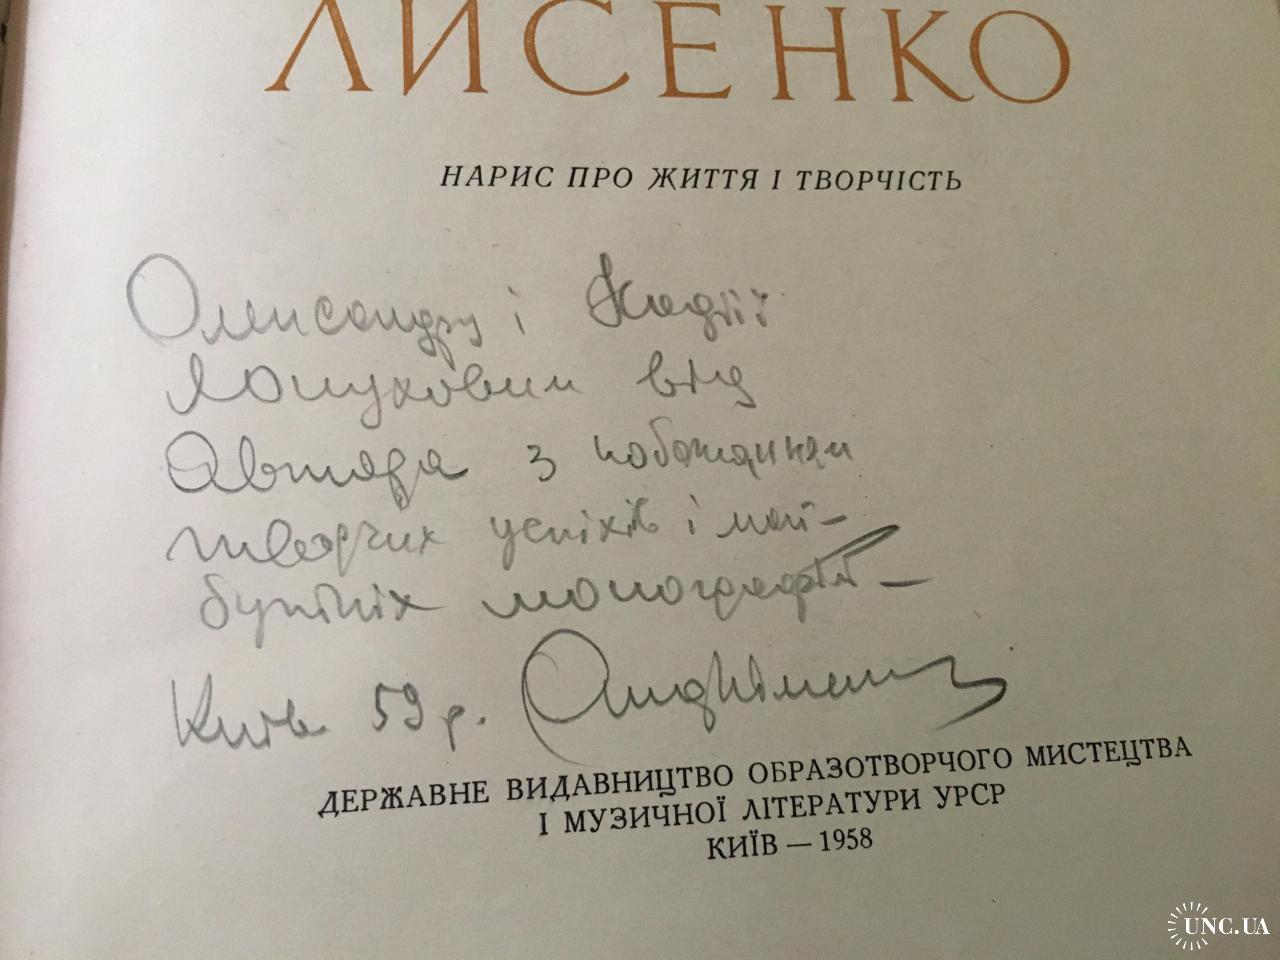 ЛИСЕНКО
НАРИС ПРО ЖИТТЯ І ТВОРЧІСТЬ
Олександру і Надії
від
Автора з побажанням
творчих успіхів і май-
бутніх монографій –
Київ 59 р.
ДЕРЖАВНЕ ВИДАВНИЦТВО ОБРАЗОТВОРЧОГО МИСТЕЦТВА
І МУЗИЧНОЇ ЛІТЕРАТУРИ УРСР
КИЇВ — 1958
UNC.UA